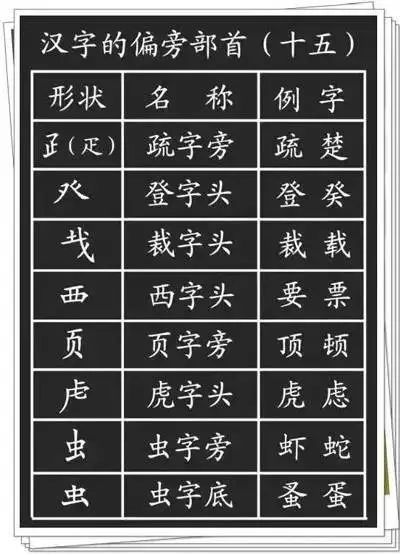 汉字的偏旁部首（十五）
形状 名 称 例 字
𤴔（疋） 疏字旁 疏 楚
癶 登字头 登 癸
𢦏 裁字头 裁 载
覀 西字头 要 票
页 页字旁 顶 顿
虍 虎字头 虎 虑
虫 虫字旁 虾 蛇
虫 虫字底 蚤 蛋